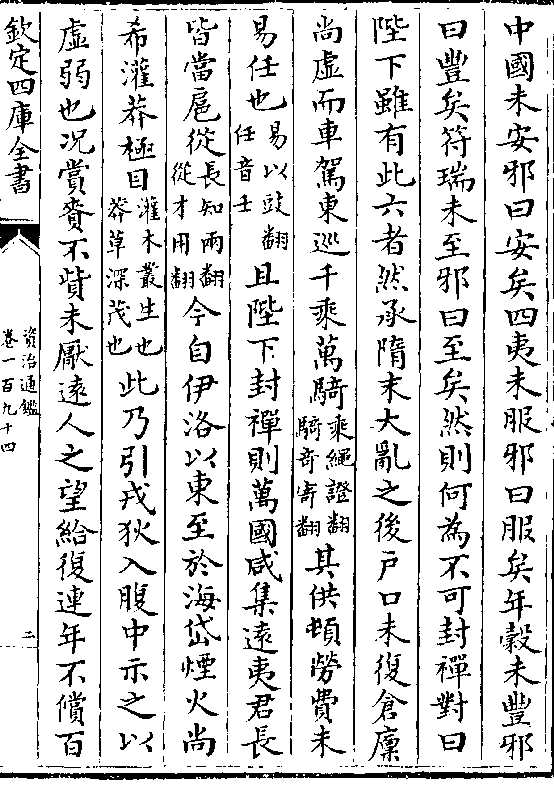 中國未安邪曰安矣四夷未服邪曰服矣年穀未豐邪
曰豐矣符瑞未至邪曰至矣然則何為不可封禪對曰
陛下雖有此六者然承隋末大亂之後戶口未復倉廩
尚虛而車駕東巡千乘萬騎乘繩證翻騎奇寄翻其供頓勞費未
易任也易以豉翻任音壬且陛下封禪則萬國咸集遠夷君長
皆當扈從長知兩翻從才用翻今自伊洛以東至於海岱煙火尚
希灌莽極目灌木叢生也莽草深茂也此乃引戎狄入腹中示之以
虛弱也况賞賚不貲未厭遠人之望給復連年不償百
欽定四庫全書
資治通鑑
卷一百九十四
二